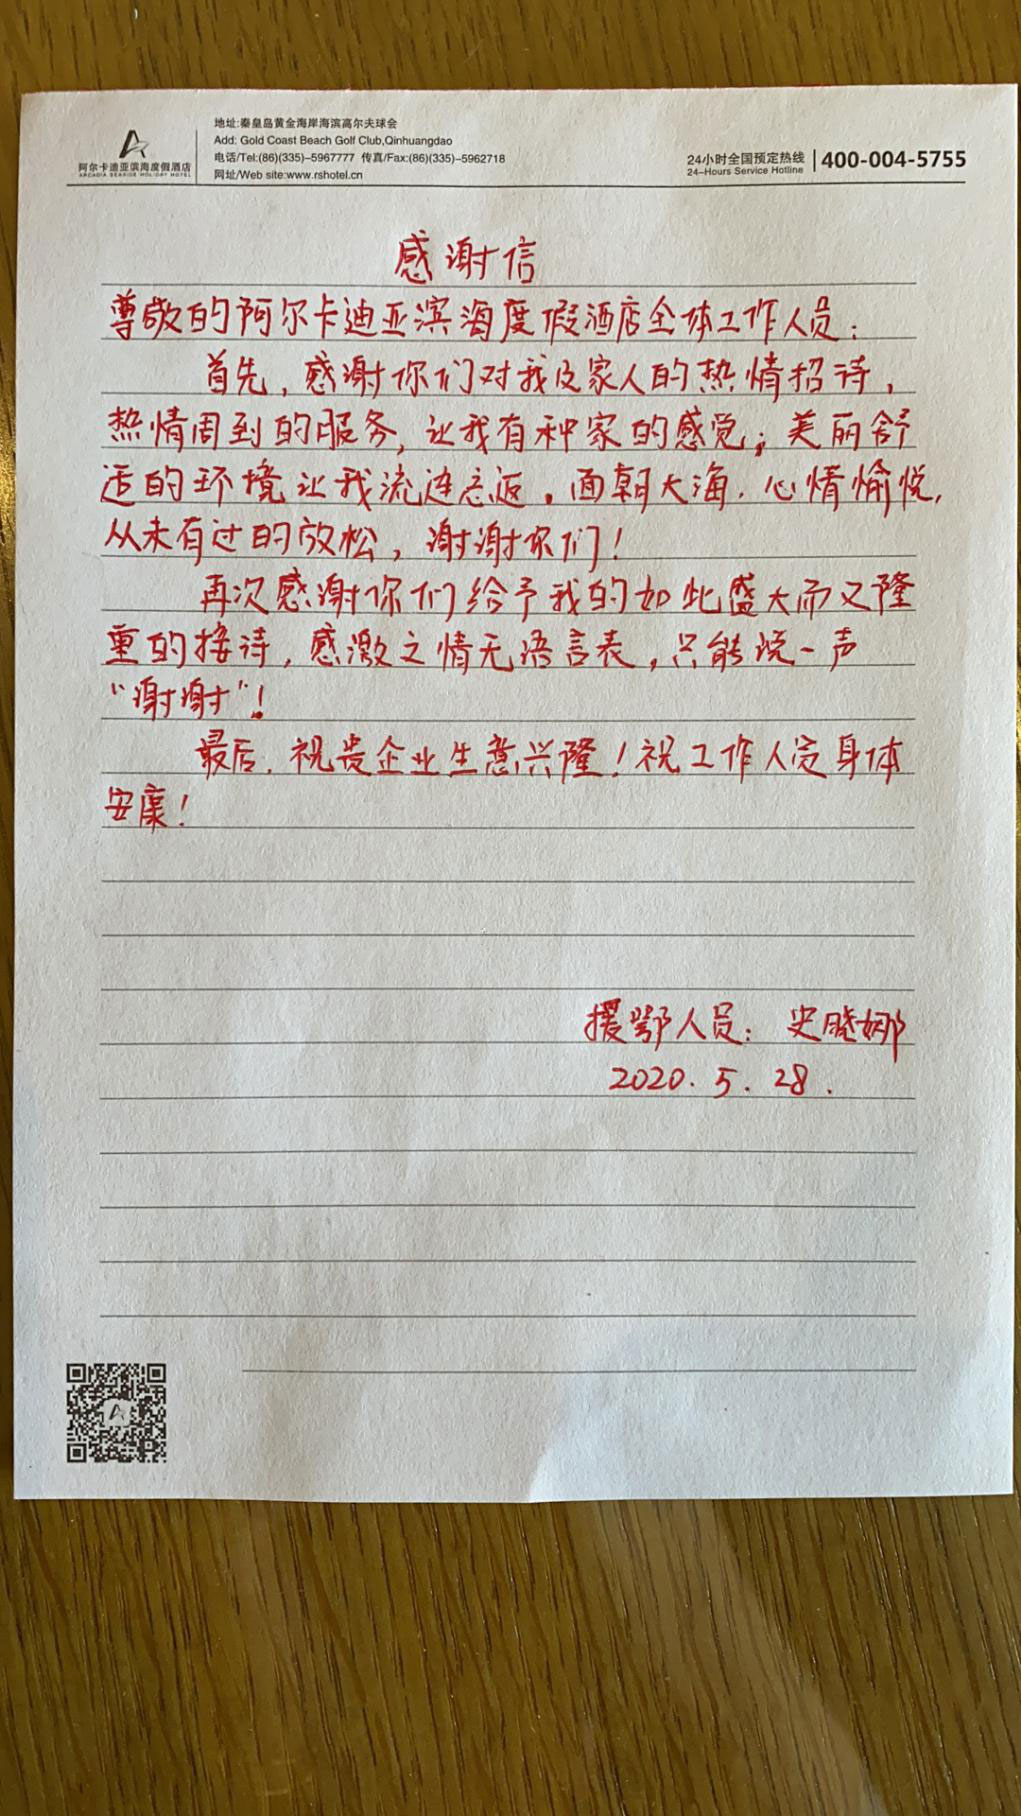 阿尔卡迪亚滨海度假酒店
ARCADIA SEASIDE HOLIDAY HOTEL
地址:秦皇岛黄金海岸海滨高尔夫球会
Add: Gold Coast Beach Golf Club,Qinhuangdao
电话/Tel:(86)(335)-5967777 传真/Fax:(86)(335)-5962718
网址/Web site:www.rshotel.cn
24小时全国预定热线
24-Hours Service Hotline
400-004-5755
感谢信
尊敬的阿尔卡迪亚滨海度假酒店全体工作人员：
首先，感谢你们对我及家人的热情招待，
热情周到的服务，让我有种家的感觉；美丽舒
适的环境让我流连忘返。面朝大海，心情愉悦，
从未有过的放松，谢谢你们！
再次感谢你们给予我的如此盛大而又隆
重的接待，感激之情无语言表，只能说一声
“谢谢”！
最后，祝贵企业生意兴隆！祝工作人员身体
安康！
援鄂人员：史晓娜
2020.5.28.